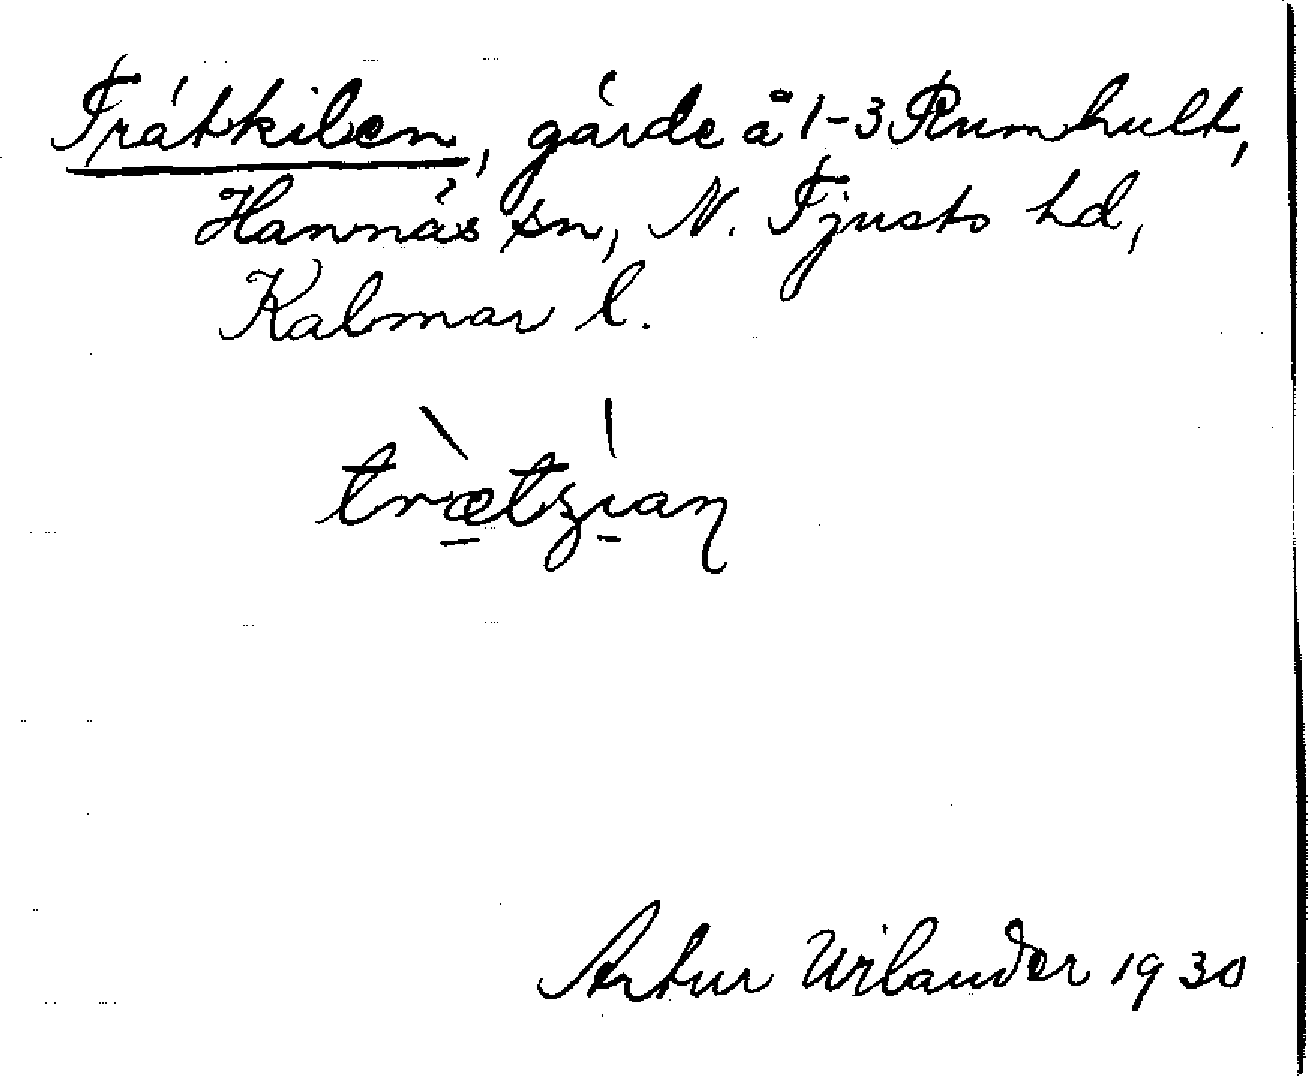 Trätkilen, gärde å 1-3 Rumhult,
Hannäs sn, N. Tjusts hd,
Kalmar l.
Artur Wilander 1930